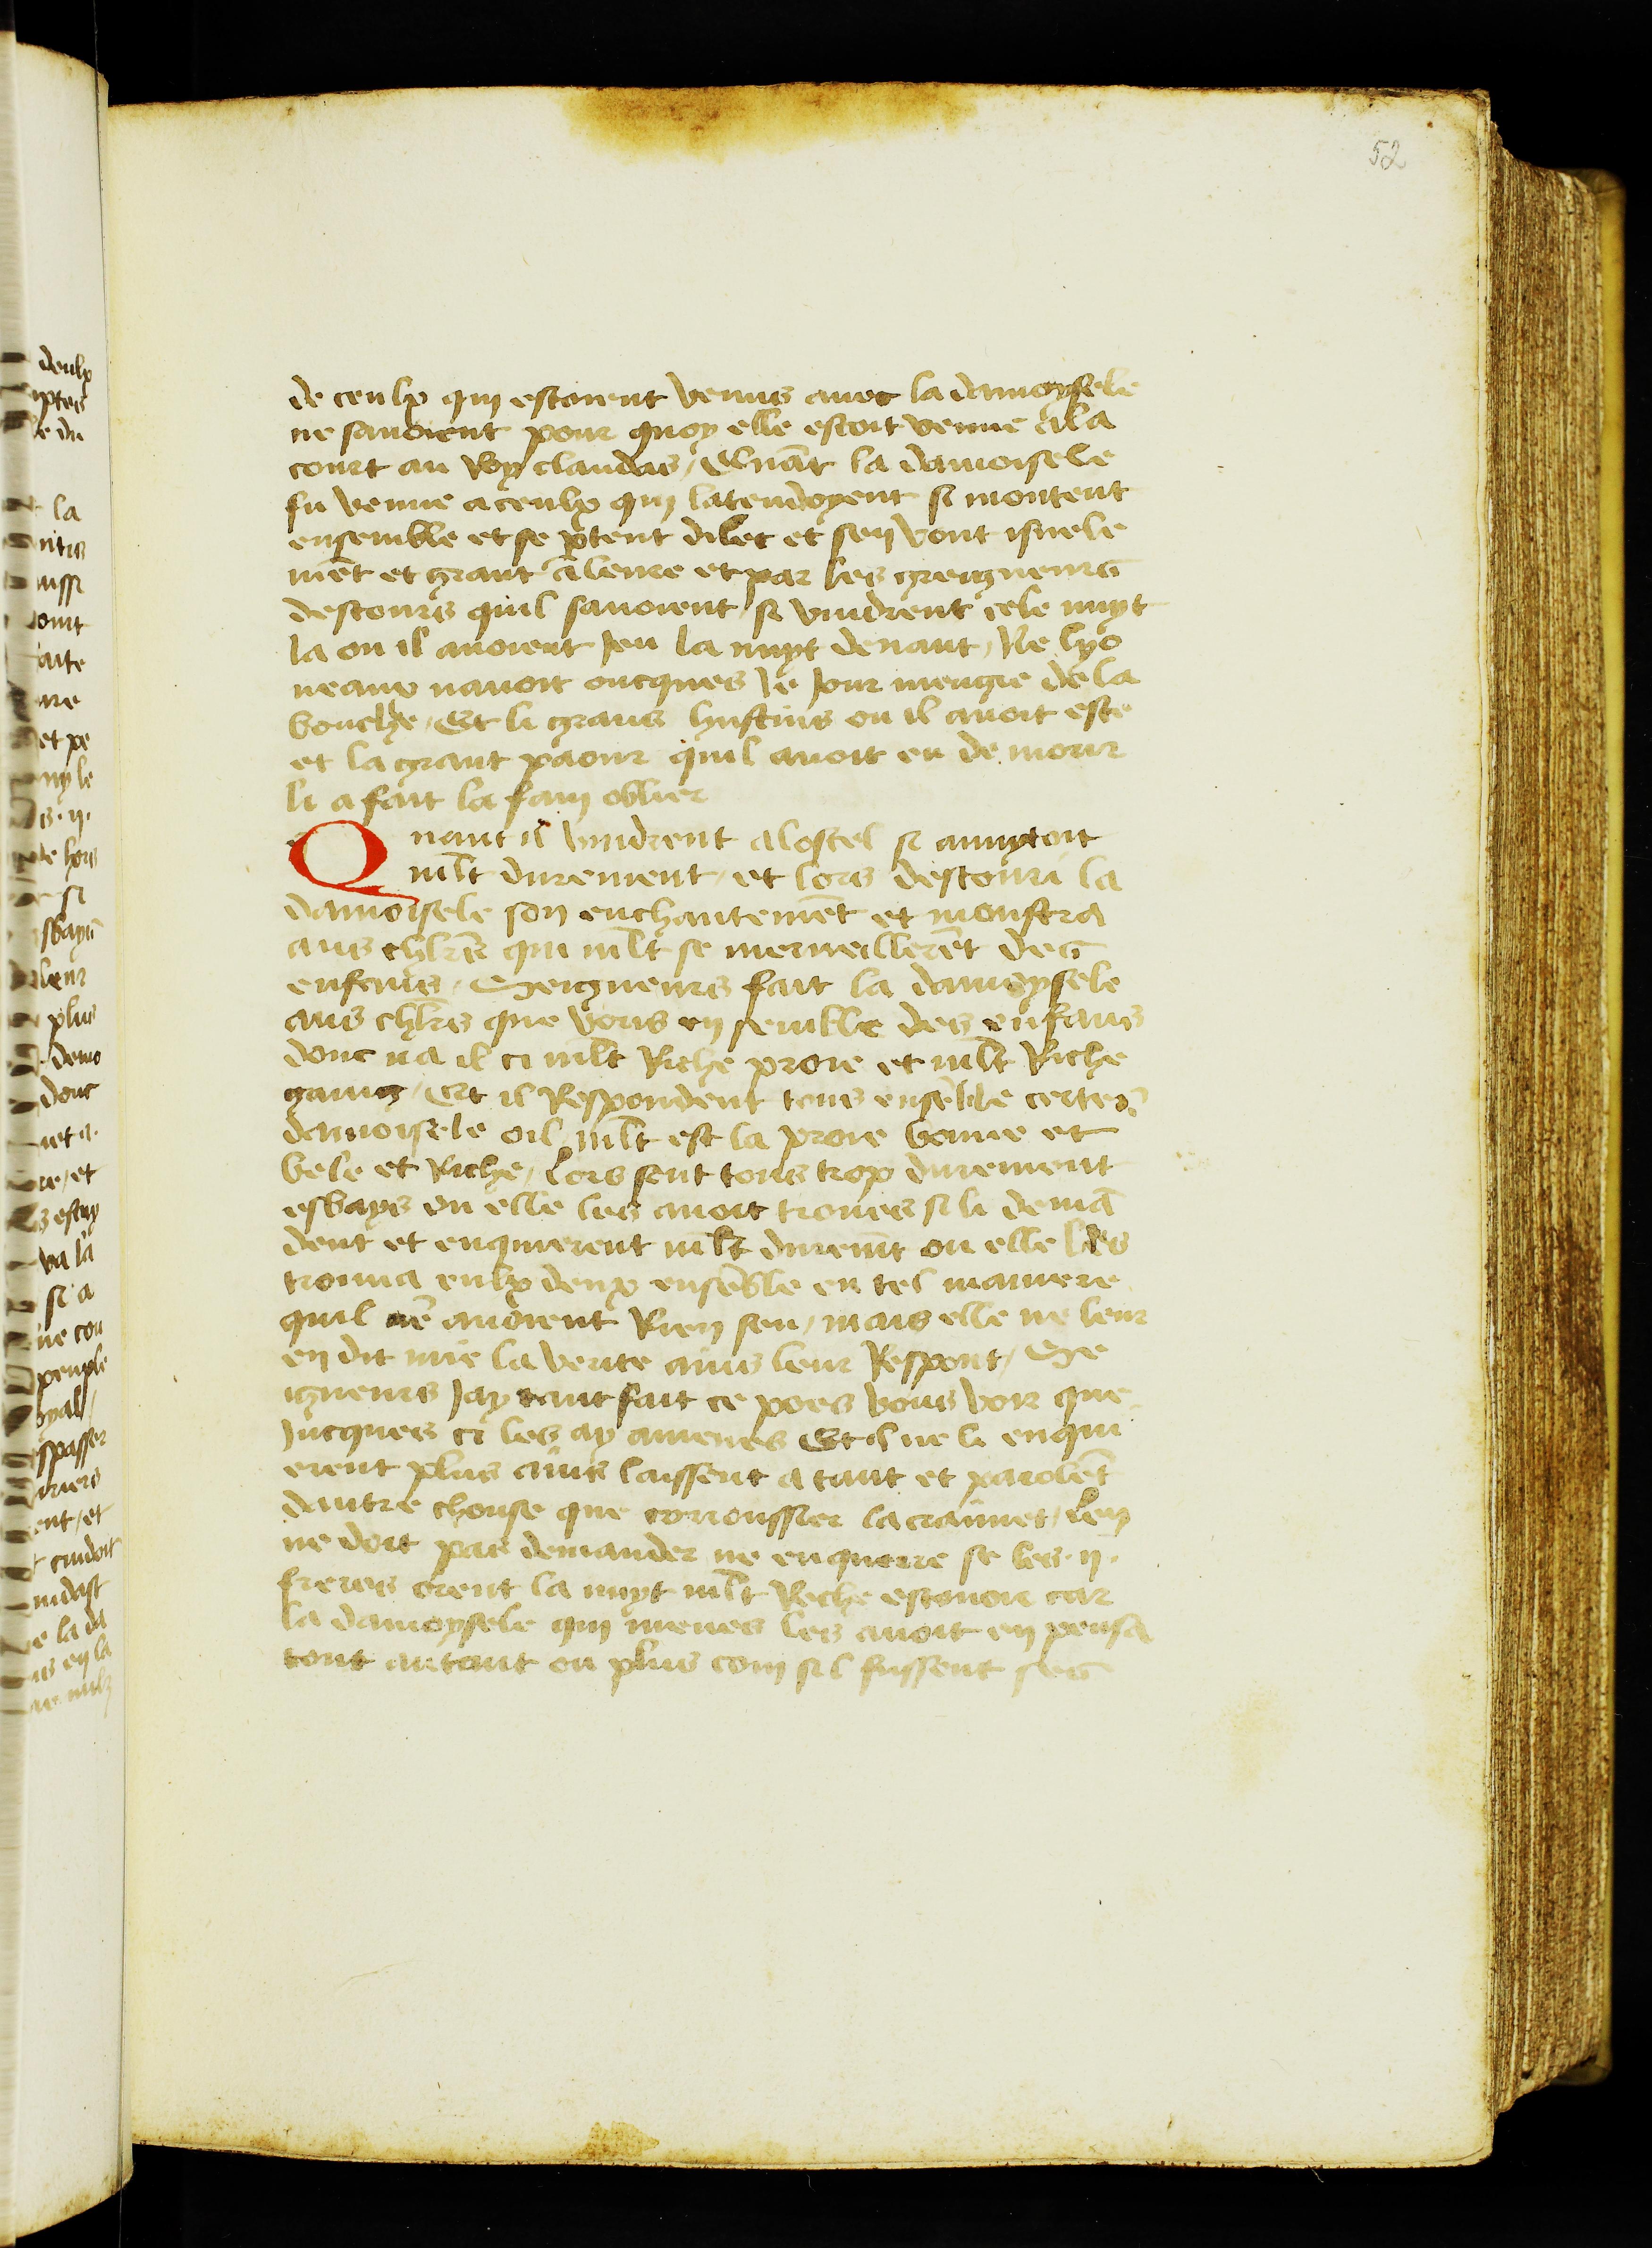 52
de ceulx qui estoient venus auec la damoysele
ne sauoient pour quoy elle estoit venue a la
court au Roy claudas / Quāt la damoisele
fu venue a ceulx qui latendoyent si montent
ensemble et se p̄tent dilec et sen vont isnele
mēt et grant aleure et par les greigneurs
destours quil sauoient / si vindrent cele nuyt
la ou il auoient Jeu la nuyt deuant / Ne lyo
neaux nauoit oncques le Jour mengie de la
bouche / Et li grans hustins ou il auoit este
et la grant paour quil auoit eu de morir
li a fait la fain oblier
Quant il vindrent a lostel si anuytoit
ml̄t durement / et lors descouuri la
damoisele son enchantemēt et monstra
aus chl̄rs qui ml̄t se merueillerēt des
enfans / Seigneurs fait la damoysele
aus chl̄rs que vous en semble des enfans
donc na il ci ml̄t Riche proie et ml̄t Riche
gaing / Et il Respondent tous ensēble certes
damoisele oil / ml̄t est la proie bonne et
bele et Riche / Lors sont tous trop durement
esbays ou elle les auoit trouues si li demā
dent et enquierent ml̄t duremt ou elle les
trouua eulx deux ensēble en tel maniere
quil nē auoient Rien seu / mais elle ne leur
en dit mie la verite ains leur Respont / Se
igneurs Jay tant fait ce poes vous voir que
Jucques ci les ay amenes Et il ne li enqui
erent plus ains laissent a tant et parolēt
dautre chouse que corroussier la craiment / Len
ne doit pas demander ne enquerre se les .ii.
freres orent la nuyt ml̄t Riche estouoir car
la damoysele qui menes les auoit en pensa
tout autant ou plus com sil fussent ses